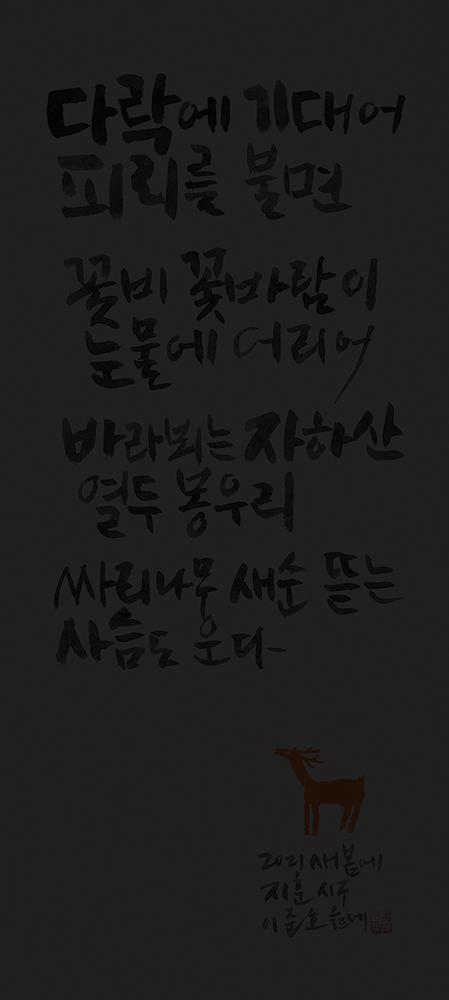 다락에 기대어
피리를 불면
꽃비 꽃바람이
눈물에 어리어
바라뵈는 자하산
열두 봉우리
싸리나무 새순 뜯는
사슴도 운다
2021 새봄에
지훈 시구
이준호